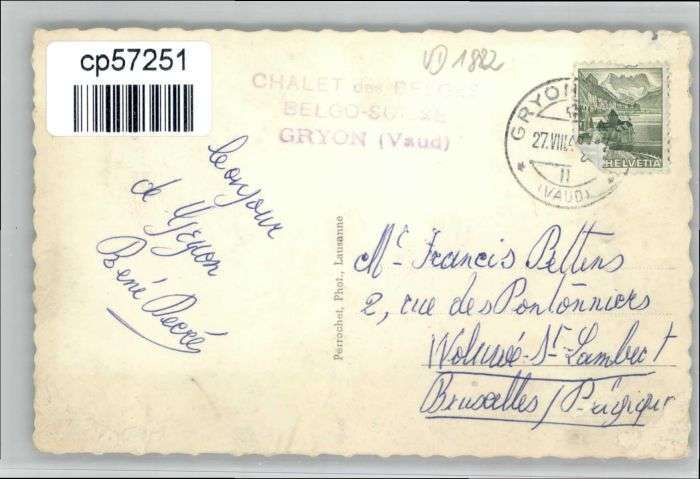 cp57251
VD 1882
CHALET des BELGES
BELGO-SUISSE
GRYON (Vaud)
GRYON
27.VIII.4
11
(VAUD)
HELVETIA
bonjour
de Gryon
René Decré
Perrochet, Phot., Lausanne
Mr Francis Pettens
2, rue des Pontonniers
Woluwé-St-Lambert
Bruxelles/Belgique